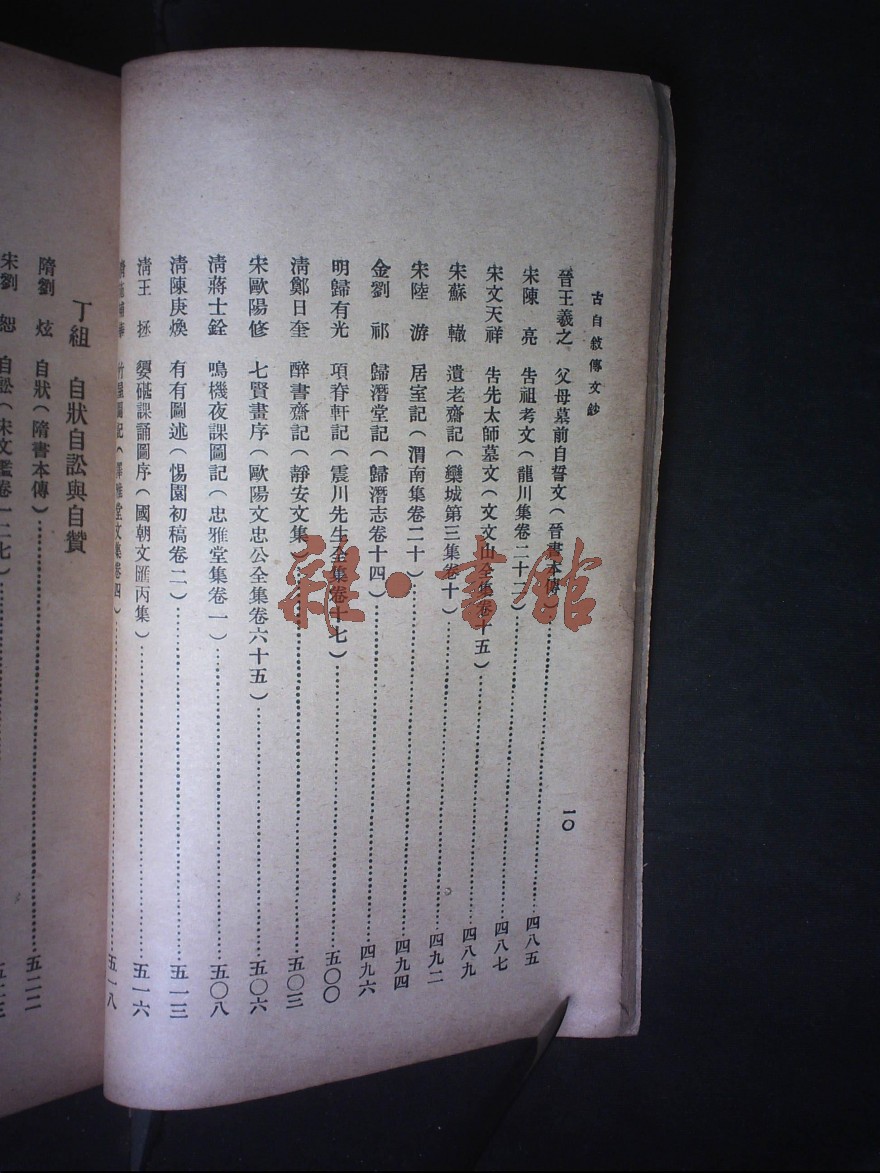 古自敘傳文鈔
一〇
晉王羲之 父母墓前自誓文(晉書本傳)……四八五
宋陳亮 告祖考文(龍川集卷二十二)……四八七
宋文天祥 告先太師墓文(文文山全集卷十五)……四八九
宋蘇轍 遺老齋記(欒城第三集卷十)……四九二
宋陸游 居室記(渭南集卷二十)……四九四
金劉祁 歸潛堂記(歸潛志卷十四)……四九六
明歸有光 項脊軒記(震川先生全集卷十七)……五〇〇
清鄭日奎 醉書齋記(靜安文集)……五〇三
宋歐陽修 七賢畫序(歐陽文忠公全集卷六十五)……五〇六
清蔣士銓 鳴機夜課圖記(忠雅堂集卷一)……五〇八
清陳庚煥 有有圖述(惕園初稿卷二)……五一三
清王拯 媭碪課誦圖序(國朝文匯丙集)……五一六
圖記(雅堂文集卷四)……五一八
丁組 自狀自訟與自贊
隋劉炫 自狀(隋書本傳)……五二二
宋劉恕 自訟(宋文鑑卷一二七)……五二三
雜·書館